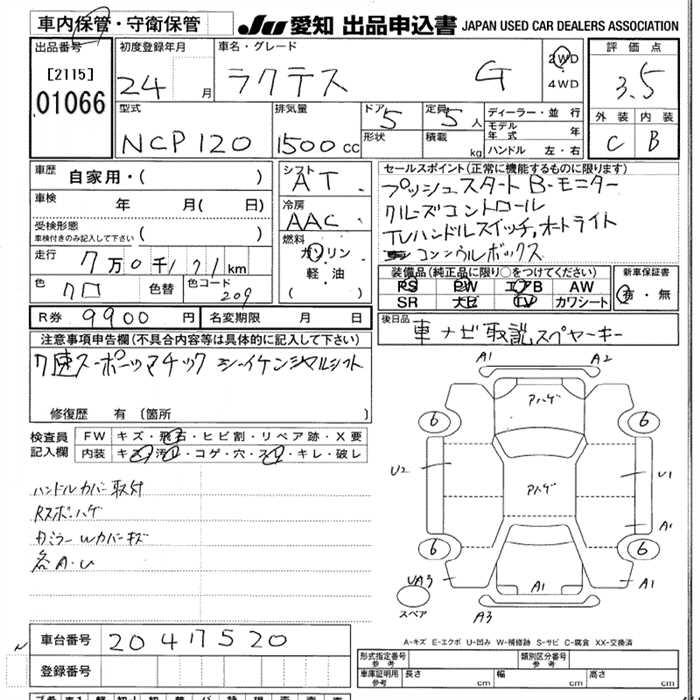 車内保管・守衛保管
JU 愛知 出品申込書 JAPAN USED CAR DEALERS ASSOCIATION
出品番号 [2115] 01066
初度登録年月 24 月
車名・グレード ラクテス G
2WD
4WD
評価点 3.5
外装 C 内装 B
型式 NCP120
排気量 1500 cc
ドア 5
形状
定員 5 人
積載 kg
ディーラー・並行
モデル年式 年
ハンドル 左・右
車歴 自家用・( )
車検 年 月( 日)
受検形態 車検付きのみ記入して下さい ( )
走行 7万0千171km
色 クロ 色替 色コード 209
シフト AT
冷房 AAC
燃料 ガソリン
軽・油
( )
セールスポイント(正常に機能するものに限ります)
プッシュスタート B-モニター
クルーズコントロール
TV ハンドルスイッチ,オートライト
コンソウルボックス
装備品(純正品に限り○をつけてください)
PS PW エアB AW
SR ナビ TV カワシート
新車保証書
有・無
R券 9900 円 名変期限 月 日
後日品 車 ナビ 取説 スペヤーキー
注意事項申告欄(不具合内容等は具体的に記入して下さい)
7速スーポーツマチック シーイケンシャルシフト
修復歴 有 〔箇所 〕
検査員記入欄
FW キズ・飛石・ヒビ割・リペア跡・X要
内装 キズ・汚レ・コゲ・穴・スレ・キレ・破レ
ハンドルカバー取付
Rスポハゲ
カミラーWカバーキズ
各A・U
A1 A2
アハゲ
6 6
U2 U1
アハゲ
A1
6 6
UA3 A1 A1
スペア
A3
A-キズ E-エクボ U-凹み W-補修跡 S-サビ C-腐食 XX-交換済
車台番号 2041520
登録番号
形式指定番号 参考 類別区分番号 参考
車庫証明用 参考 長さ cm 幅 cm 高さ cm